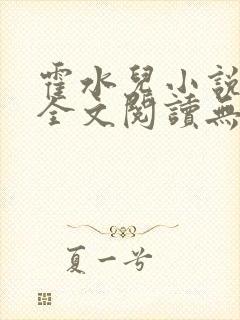 霍水兒小說
全文閱讀無
夏一兮